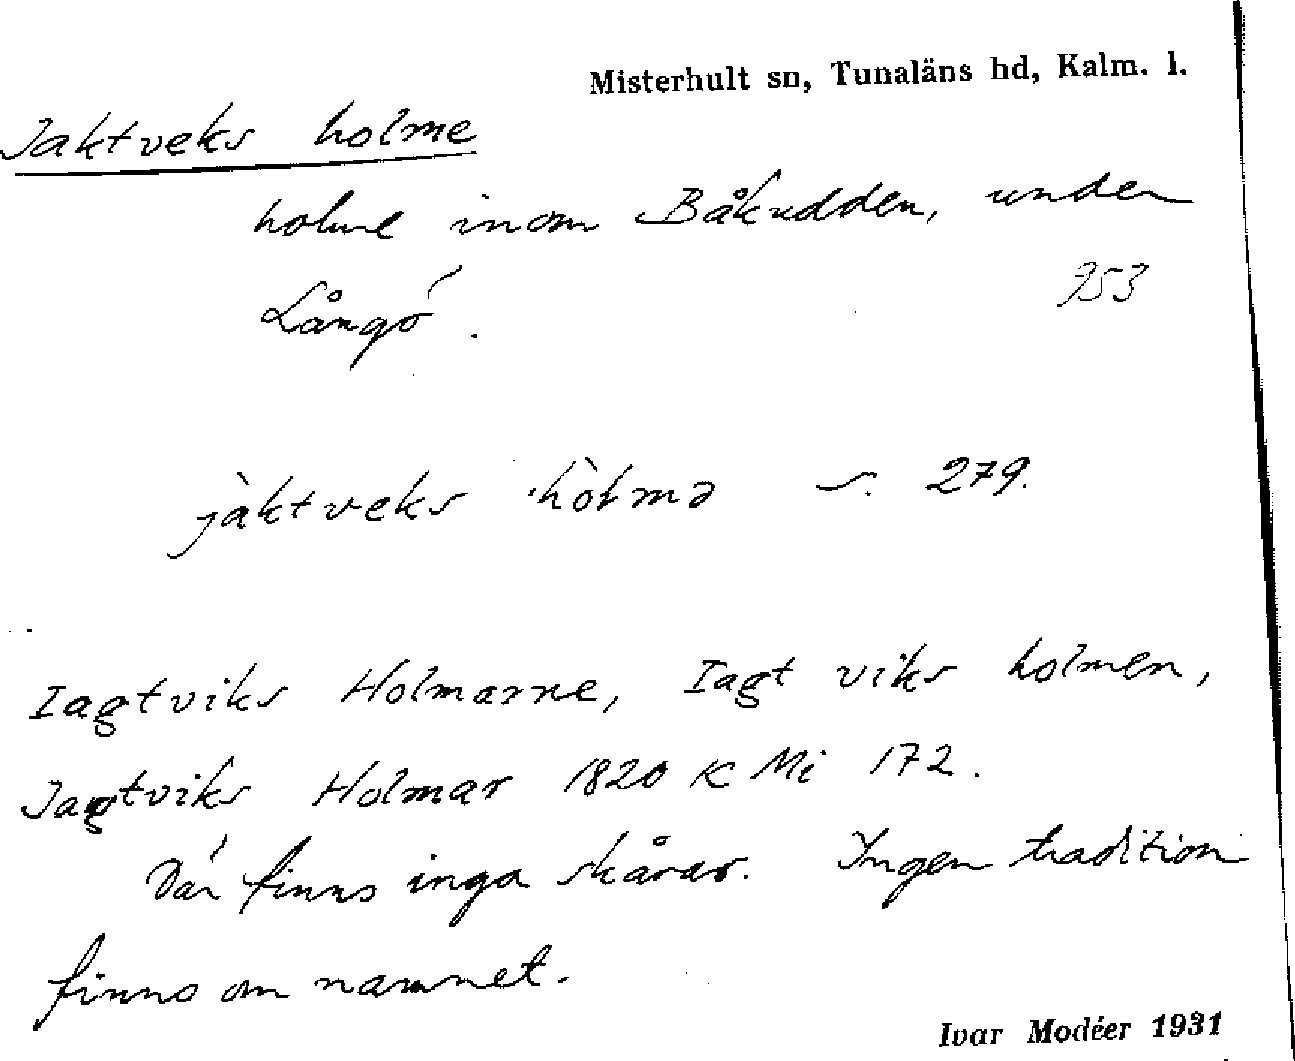 Misterhult sn, Tunaläns hd, Kalm. l.
Jaktveks holme
holme inom Båkudden, under
Långö. 953
jàktveks hòlmə s. 279.
Iagtviks Holmarne, Iagt viks holmen,
Jagtviks Holmar 1820 K Mi 172.
Där finns inga skårar. Ingen tradition
finns om namnet.
Ivar Modéer 1931